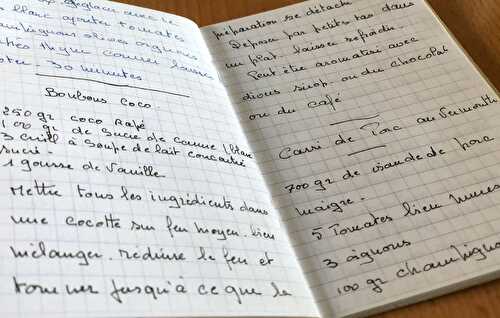 glaçon avec le
blanc ajouter tomates
aubergines olives oignons
thym couvrir laisser
30 minutes
Bonbons Coco.
250 gr coco Rapé
100 gr de Sucre de canne / blanc
3 Cuill à Soupe de lait concentré
sucré.
1 gousse de Vanille
Mettre tous les ingrédients dans
une cocotte sur feu moyen. bien
mélanger. réduire le feu et
tourner jusqu'à ce que la
préparation se détache
Déposer par petits tas dans
un plat. laisser refroidir.
Peut être aromatisé avec
sirop. ou du chocolat
ou du café
Carri de Porc au Vermouth
700 gr de viande de porc
maigre.
5 Tomates bien mures
3 oignons
100 gr champignons